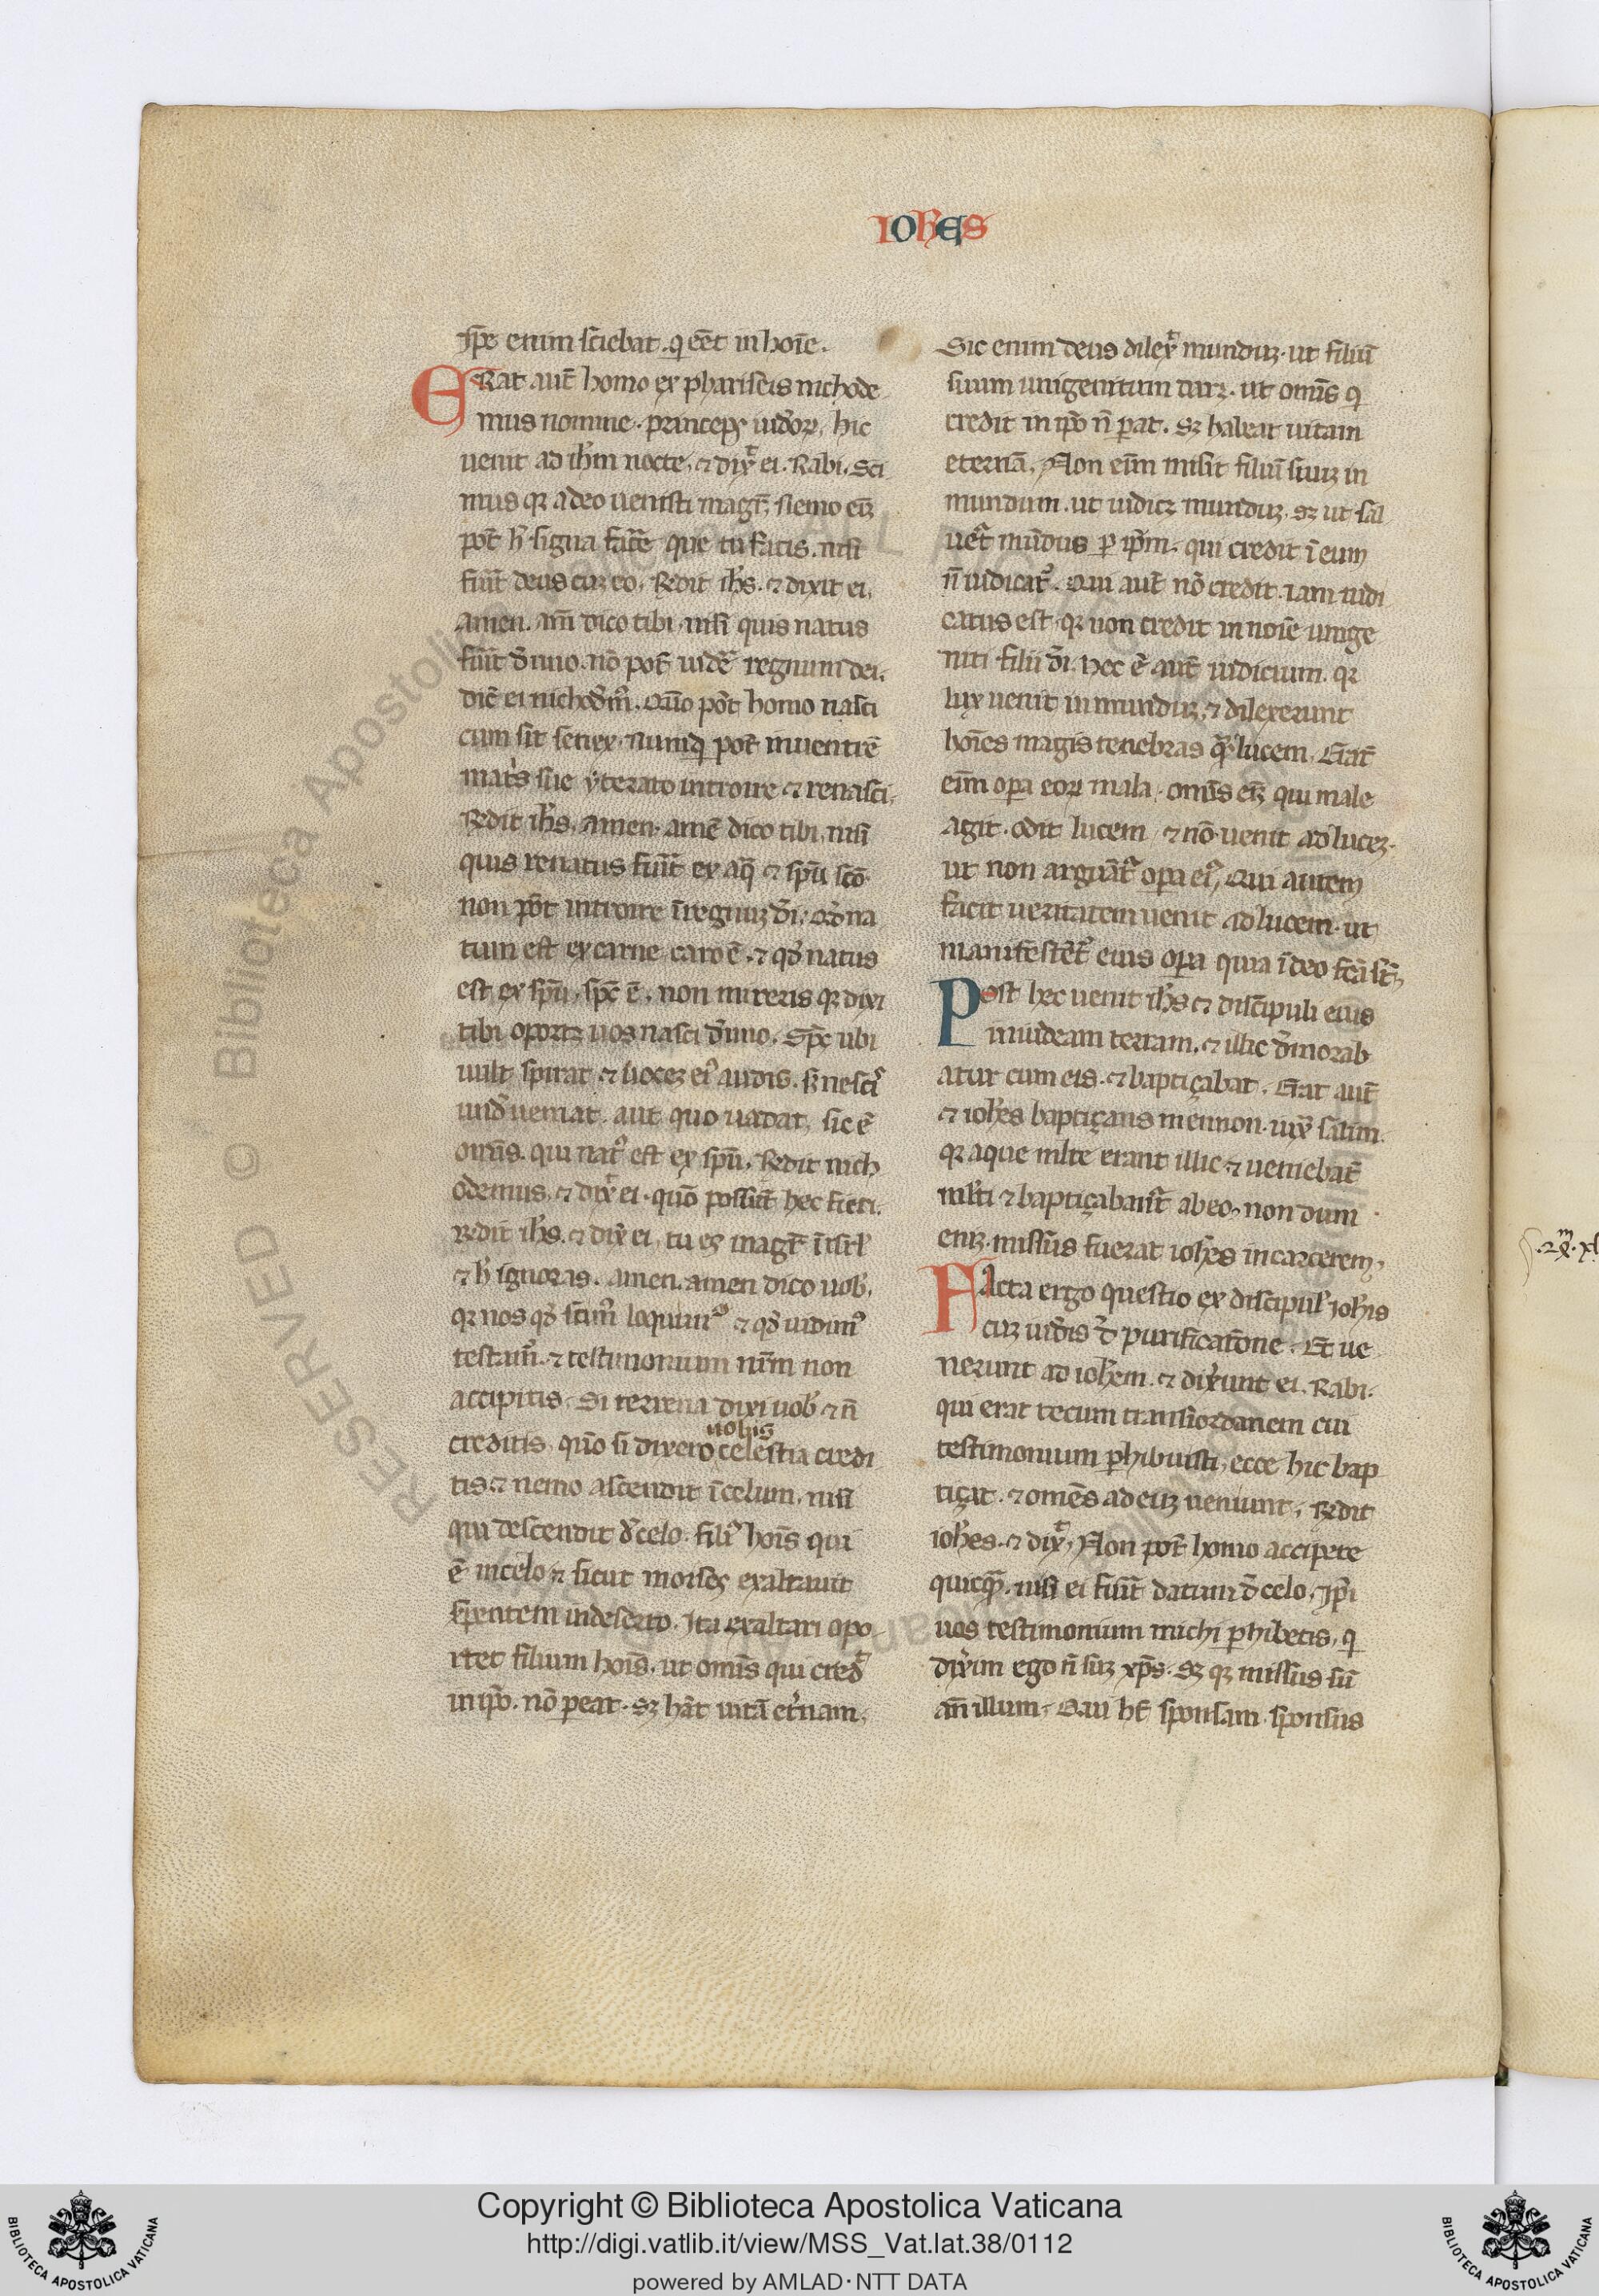 IOHES
ip̄e enim sciebat. q eēt in hoīe.
ERat aut̄ homo ex phariseis nichode
mus nomine. princeps iudeoꝝ, hic
uenit ad ih̄m nocte, ⁊ dix̄ ei. Rabi. Sci
mus qꝛ a deo uenisti magr̄, Nemo eīꝫ
pōt h̄ signa fac̄e que tu facis. nisi
fūit deus cuꝫ eo. R̄dit ih̄s. ⁊ dixit ei.
amen. am̄ dico tibi. nisi quis natus
fūit d̄nuo. nō pot̄ uidē regnum dei.
dic̄ ei nichod̄m̄. Quo pōt homo nasci
cum sit senex. nunq̄ pot̄ in uentrē
mat̄s sue yterato introire ⁊ renasci.
R̄dit ih̄s. Amen. amē dico tibi. nisi
quis renatus fūit ex aq̄ ⁊ sp̄u scō.
non pōt introire ī regnuꝫ d̄i. Qd̄ na
tum est ex carne caro ē. ⁊ qd̄ natus
est ex sp̄u, sp̄c ē. non mireris qꝛ dixi
tibi oportꝫ uos nasci d̄nuo. Sp̄c ubi
uult spirat ⁊ uoceꝫ ei᾽ audis. s̄ nesci᾽
und̄ ueniat. aut quo uadat, sic ē
om̄s. qui nat᾽ est ex sp̄u. R̄dit nich
odemus, ⁊ dix̄ ei. quō possūt hec fieri.
R̄dit ih̄s. ⁊ dix̄ ei, tu es magr̄ ī isrl̄
⁊ h̄ ignoras. amen. amen dico uob̄.
qꝛ nos qd̄ scim᾽ loquim᾽ ⁊ qd̄ uidim᾽
testam᾽. ⁊ testimonium nr̄m non
accipitis. Si terrena dixi uob̄ ⁊ n̄
uobis
creditis, quō si dixero celestia credi
tis. ⁊ nemo ascendit ī celum. nisi
qui descendit d̄ celo. fili᾽ hoīs qui
ē in celo ⁊ sicut moises exaltauit
s̄pentem in deserto. Ita exaltari opo
rtet filium hoīs. ut om̄s qui cred̄
in ip̄o. nō peat. Sꝫ hāt uitā et̄nam.
Sic enim deus dilex̄ munduꝫ. ut filiū
suum unigenitum darꝫ. ut om̄s q
credit in ip̄o n̄ p̄at. Sꝫ habeat uitam
eternā. Non eīm misit filiū suuꝫ in
mundum. ut iudicꝫ munduꝫ. Sꝫ ut sal
uēt mūdus p ip̄m. qui credit ī eum
n̄ iudicat᾽. Qui aut̄ nō credit. iam iudi
catus est. qꝛ non credit in noīe unige
niti filii d̄i. hec ē aut̄ iudicium. qꝛ
lux uenit in munduꝫ, ⁊ dilexerunt
hoīes magis tenebras q̄ lucem. Erāt
eīm opa eoꝝ mala. om̄s eīꝫ qui male
agit. odit lucem ⁊ nō uenit ad luceꝫ.
ut non arguāt᾽ opa ei᾽. Qui autem
facit ueritatem uenit ad lucem. ut
manifestēt᾽ eius opa quia ī deo fc̄a st̄.
Post hec uenit ih̄s ⁊ discipuli eius
in iudeam terram. ⁊ illic d̄morab
atur cum eis. ⁊ baptiçabat. Erat aut̄
⁊ ioh̄es baptiçans in ennon. iux̄ salim.
qꝛ aque ml̄te erant illic ⁊ ueniebāt
ml̄ti ⁊ baptiçabant̄ ab eo. non dum
eniꝫ. missus fuerat ioh̄es in carcerem.
FActa ergo questio ex discipul̄ ioh̄is
cuꝫ iud̄is d̄ purificatōne. Et ue
nerunt ad ioh̄em. ⁊ dix̄unt ei. Rabi.
qui erat tecum trans iordanem cui
testimonium phibuisti, ecce hic bap
tiçat. ⁊ omēs ad euꝫ ueniunt. R̄dit
ioh̄es. ⁊ dix̄. Non pot̄ homo accipere
quicq̄. nisi ei fūit datum d̄ celo. ip̄i
uos testimonium michi phibetis, q
dix̄im ego n̄ suꝫ xp̄s. Sꝫ qꝛ missus sū
an̄ illum. Qui ht̄ sponsam sponsus
RESERVED © Biblioteca Apostolica Vaticana
Copyright © Biblioteca Apostolica Vaticana
http://digi.vatlib.it/view/MSS_Vat.lat.38/0112
powered by AMLAD·NTT DATA
BIBLIOTECA APOSTOLICA VATICANA
BIBLIOTECA APOSTOLICA VATICANA